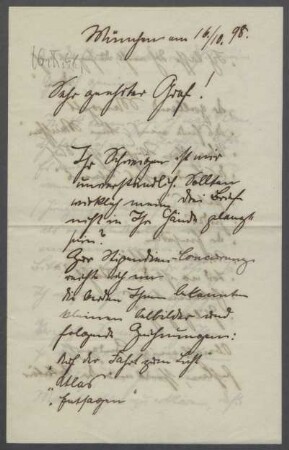 München am 16/10. 98.
Sehr geehrter Graf!
Ihr Schreiben ist mir
unverständlich. Sollten
wirklich meine drei Briefe
nicht in Ihre Hände gelangt
sein?
Zur Stipendien-Concurrenz
reichte ich ein
die beiden Ihnen bekannten
kleinen Ölbilder und
folgende Zeichnungen:
"Auf der Fahrt zum Licht"
"Atlas"
"Entsagen"